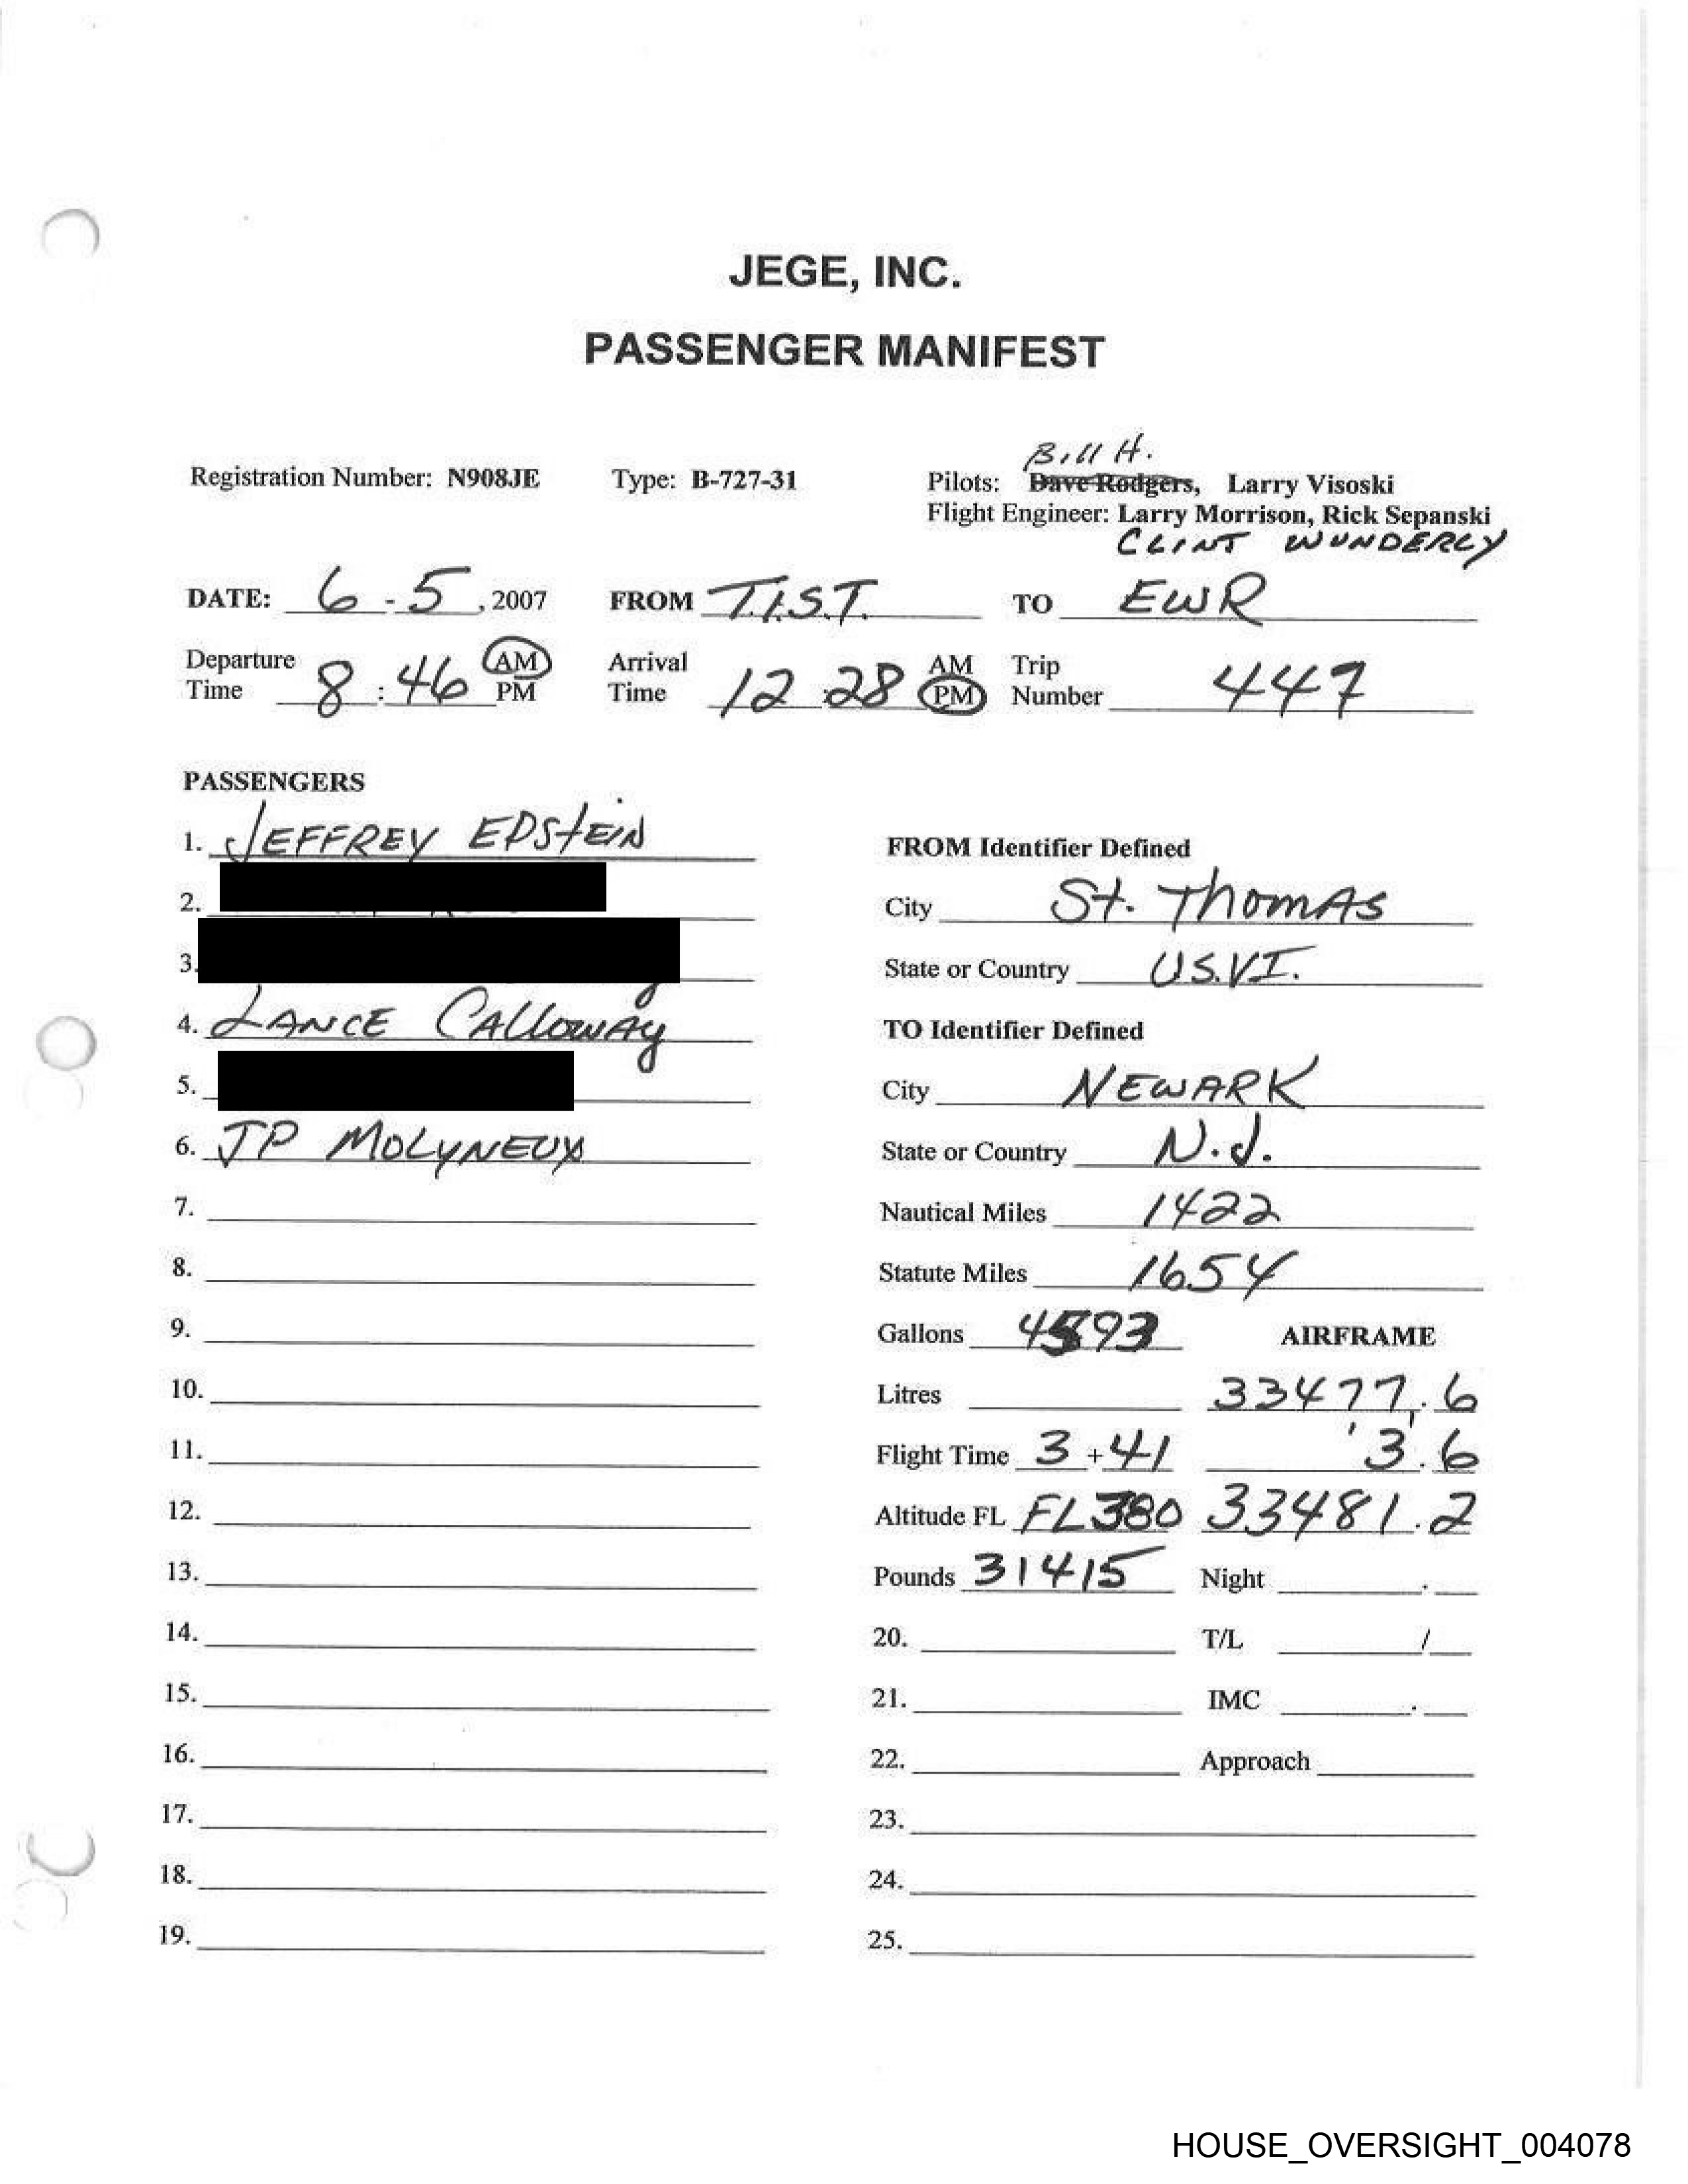 JEGE, INC.
PASSENGER MANIFEST
Bill H.
Registration Number: N908JE Type: B-727-31 Pilots: Dave Rodgers, Larry Visoski
Flight Engineer: Larry Morrison, Rick Sepanski
CLINT WUNDERLY
DATE: 6 - 5, 2007 FROM T.I.S.T. TO EWR
Departure Time 8:46 AM PM Arrival Time 12:28 AM PM Trip Number 447
PASSENGERS
1. JEFFREY EPStEIN
2.
3.
4. LANCE CALLOWAY
5.
6. JP MOLYNEUX
7.
8.
9.
10.
11.
12.
13.
14.
15.
16.
17.
18.
19.
FROM Identifier Defined
City St. ThomAs
State or Country U.S.V.I.
TO Identifier Defined
City NEWARK
State or Country N.J.
Nautical Miles 1422
Statute Miles 1654
Gallons AIRFRAME
Litres 33477.6
Flight Time 3 + 41 3.6
Altitude FL FL380 33481.2
Pounds 31415 Night .
20. T/L /
21. IMC .
22. Approach
23.
24.
25.
HOUSE_OVERSIGHT_004078